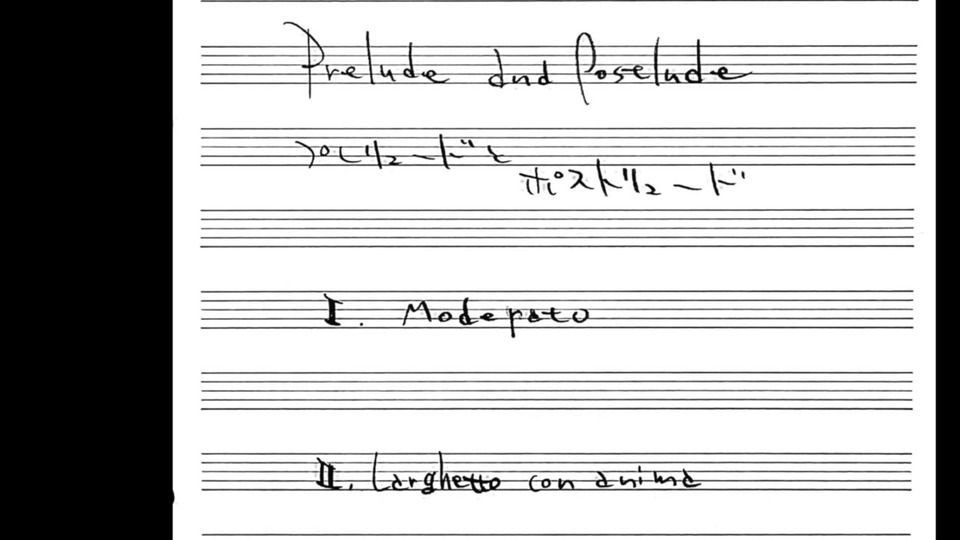 Prelude and Poselude
プレリュードと
ポストリュード
I. Moderato
II. Larghetto con anima